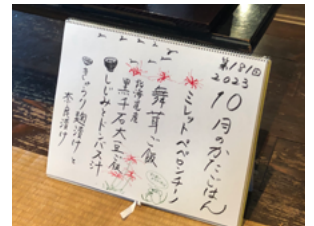 第181回
2023
10月のかたごはん
ミレットペペロンチーノ
舞茸ご飯
北海道産
黒千石大豆ご飯
しじみとドンバス汁
きゅうり麹漬けと
奈良漬け